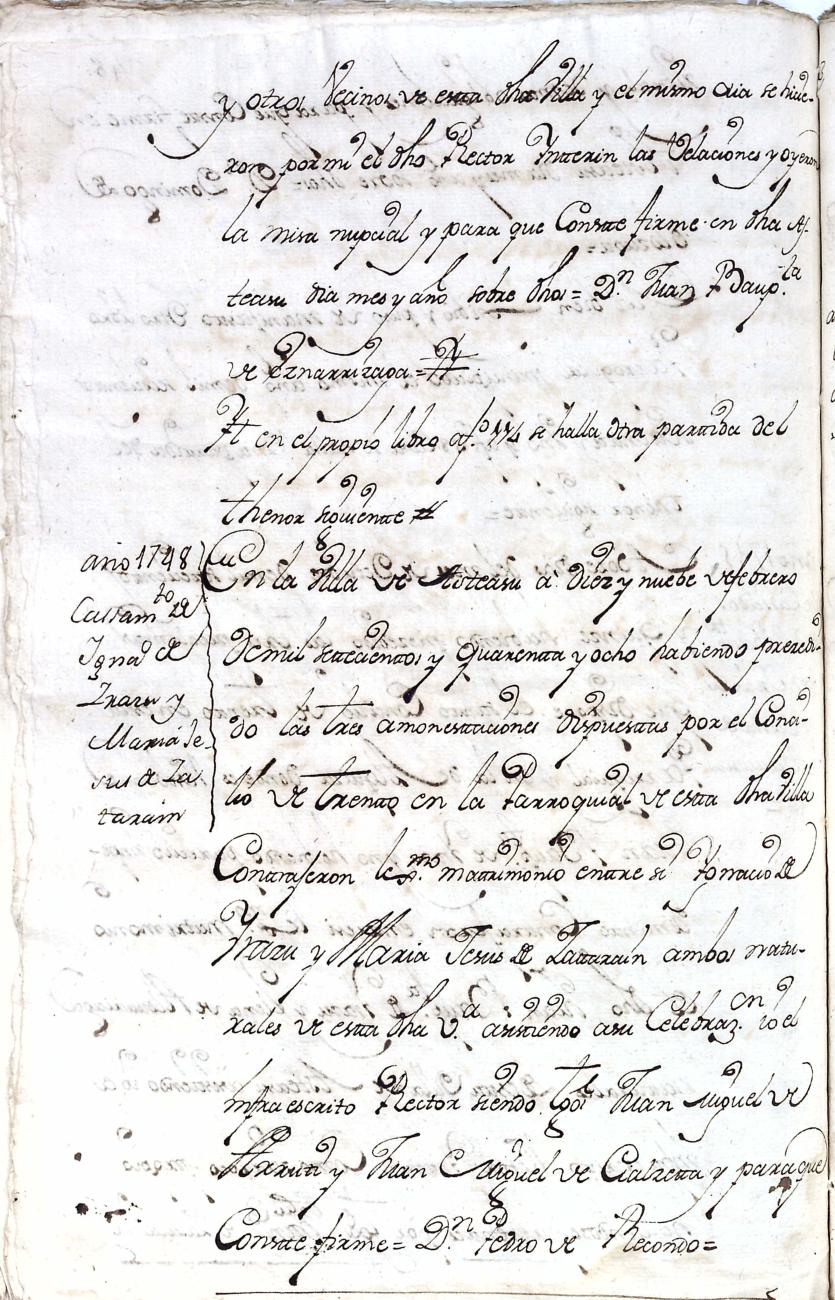 y otros Vecinos de esta dha Villa y el mismo dia se hicie-
ron por mi el dho Rector Ynterin las Velaciones y oyeron
la misa nupcial y para que Constte firme en dha As-
teasu dia mes y año sobre dhos= Dn. Juan Baup.ta
de Yznarrizaga=
Yt en el propio libro a fo. 114 se halla otra partida del
thenor siguiente
año 1748
Cassamto. de
Ignaº de
Yrazu y
Maria Je-
sus de La
tarain
En la Villa de Asteasu a diez y nuebe de febrero
de mil settecientos y quarentta y ocho habiendo prezedi-
do las tres amonesttaciones dispuesttas por el Conci-
lio de trentto en la Parroquial de estta dha Villa
Conttrajeron lexmo. mattrimonio enttre si Ygnacio de
Yrazu y Maria Jesus de Lattarain ambos natu-
rales de estta dha V.a asisttiendo a su Celebraz.on io el
infraescrito Recttor siendo tgos Juan Miguel de
Arruti y Juan Miguel de Cialzetta y para que
Constte firme= Dn. Pedro de Recondo=